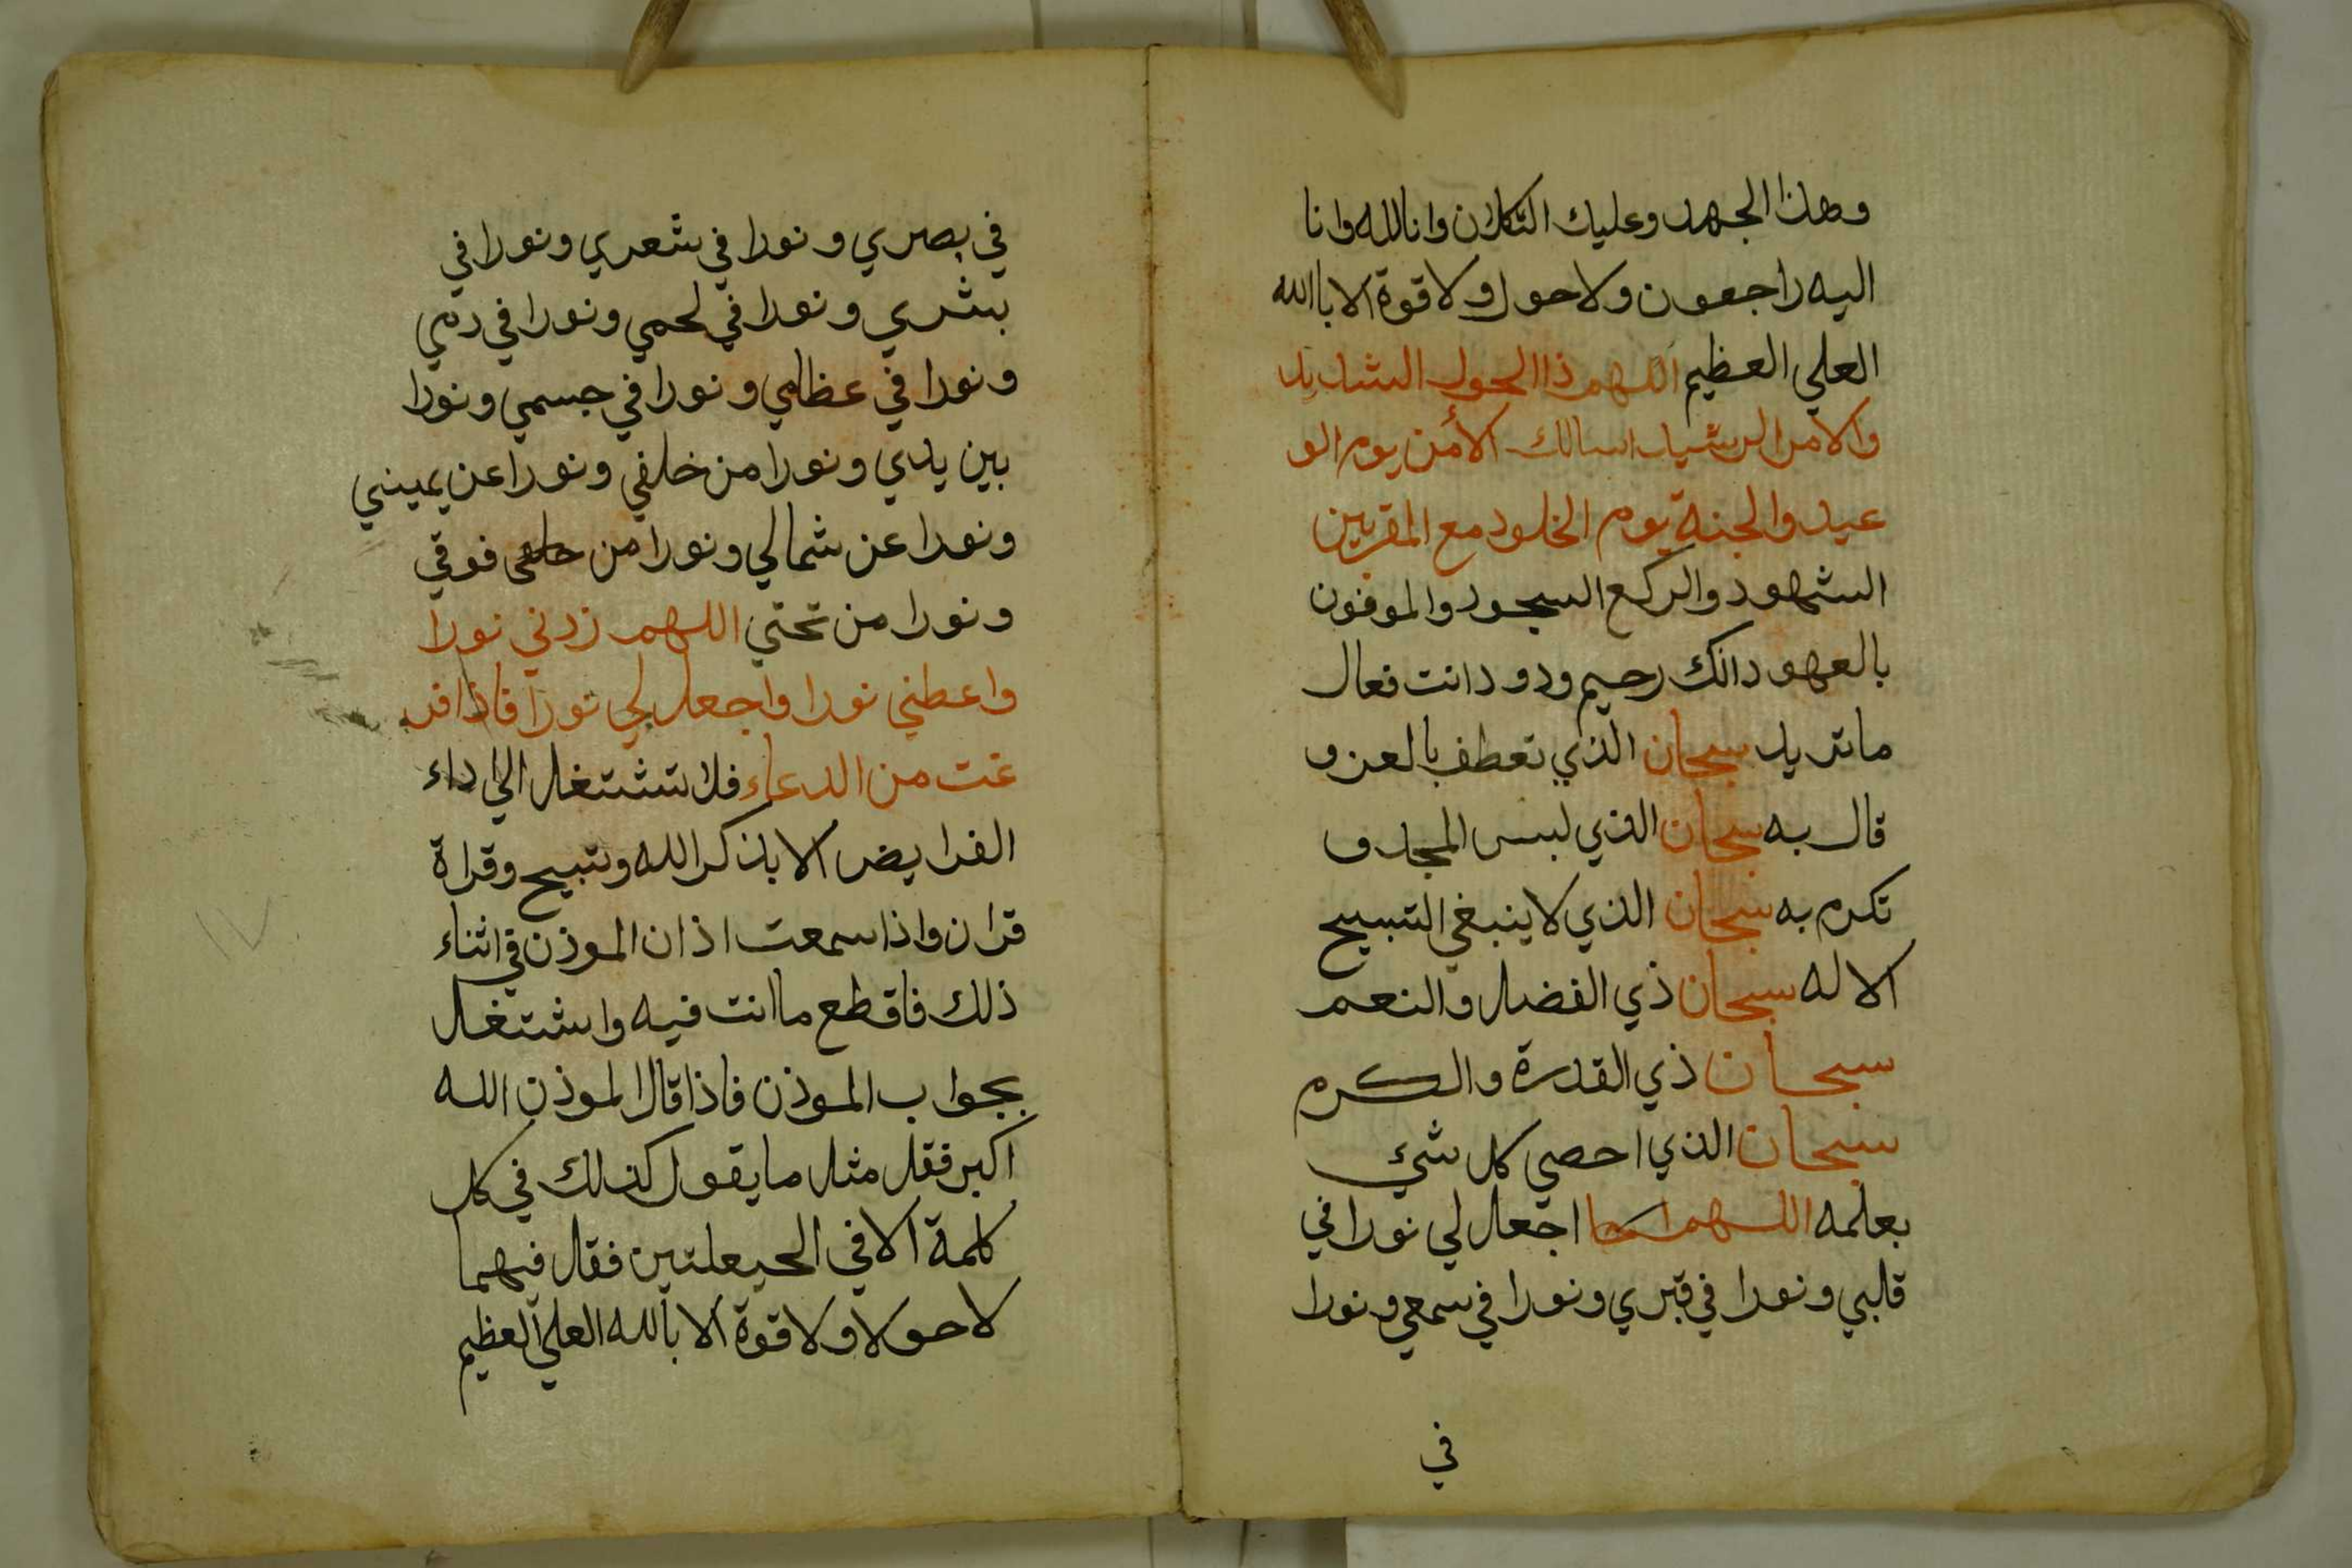 وهذا الجهد وعليك التكلان وانا لله وانا
اليه راجعون ولا حول ولا قوة الا باالله
العلي العظيم اللهم ذا الحول الشديد
والامر الرشيد اسالك الأمن يوم الو
عيد والجنة يوم الخلود مع المقربين
الشهود والركع السجود والموفون
بالعهود انك رحيم ودود انت فعال
ما تريد سبحان الذي تعطف بالعز و
قال به سبحان الذي لبس المجد و
تكرم به سبحان الذي لا ينبغي التسبيح
الا له سبحان ذي الفضل والنعم
سبحان ذي القدرة والكرم
سبحان الذي احصي كل شيء
بعلمه اللهم اجعل لي نورا في
قلبي ونورا في قبري ونورا في سمعي ونورا
في
في بصري ونورا في شعري ونورا في
بشري ونورا في لحمي ونورا في دمي
ونورا في عظامي ونورا في جسمي ونورا
بين يدي ونورا من خلفي ونورا عن يميني
ونورا عن شمالي ونورا من فوقي
ونورا من تحتي اللهم زدني نورا
واعطني نورا واجعل لي نورا فاذا فر
غت من الدعاء فلا تشتغل الي اداء
الفرايض الا بذكر الله وتسبيح وقراة
قران واذا سمعت اذان الموذن في اثناء
ذلك فاقطع ما انت فيه واشتغل
بجواب الموذن فاذا قال الموذن الله
اكبر فقل مثل ما يقول كذلك في كل
كلمة الا في الحيعلتين فقال فيهما
لا حولا ولا قوة الا بالله العلي العظيم